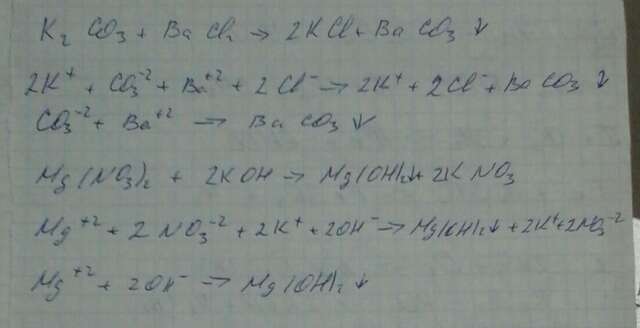 K₂CO₃ + BaCl₂ → 2KCl + BaCO₃↓
2K⁺ + CO₃⁻² + Ba⁺² + 2Cl⁻ → 2K⁺ + 2Cl⁻ + BaCO₃↓
CO₃⁻² + Ba⁺² → BaCO₃↓
Mg(NO₃)₂ + 2KOH → Mg(OH)₂↓ + 2KNO₃
Mg⁺² + 2NO₃⁻² + 2K⁺ + 2OH⁻ → Mg(OH)₂↓ + 2K⁺ + 2NO₃⁻²
Mg⁺² + 2OH⁻ → Mg(OH)₂↓